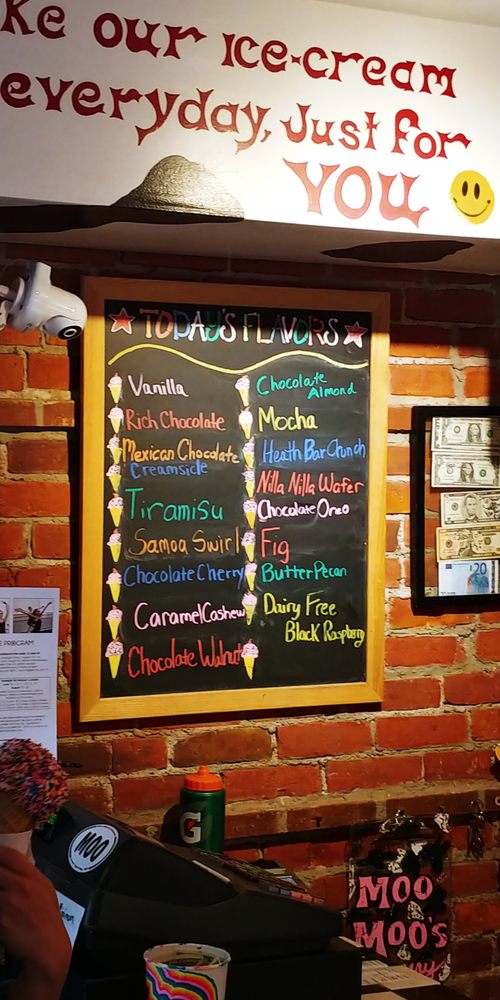 ke our ice-cream
everyday, Just for
YOU
TODAY'S FLAVORS
Vanilla
Rich Chocolate
Mexican Chocolate
Creamsicle
Tiramisu
Samoa Swirl
Chocolate Cherry
Caramel Cashew
Chocolate Walnut
Chocolate
Almond
Mocha
Heath Bar Crunch
Nilla Nilla Wafer
Chocolate Oreo
Fig
Butter Pecan
Dairy Free
Black Raspberry
20
PROGRAM
G
MOO
MOO
MOO'S